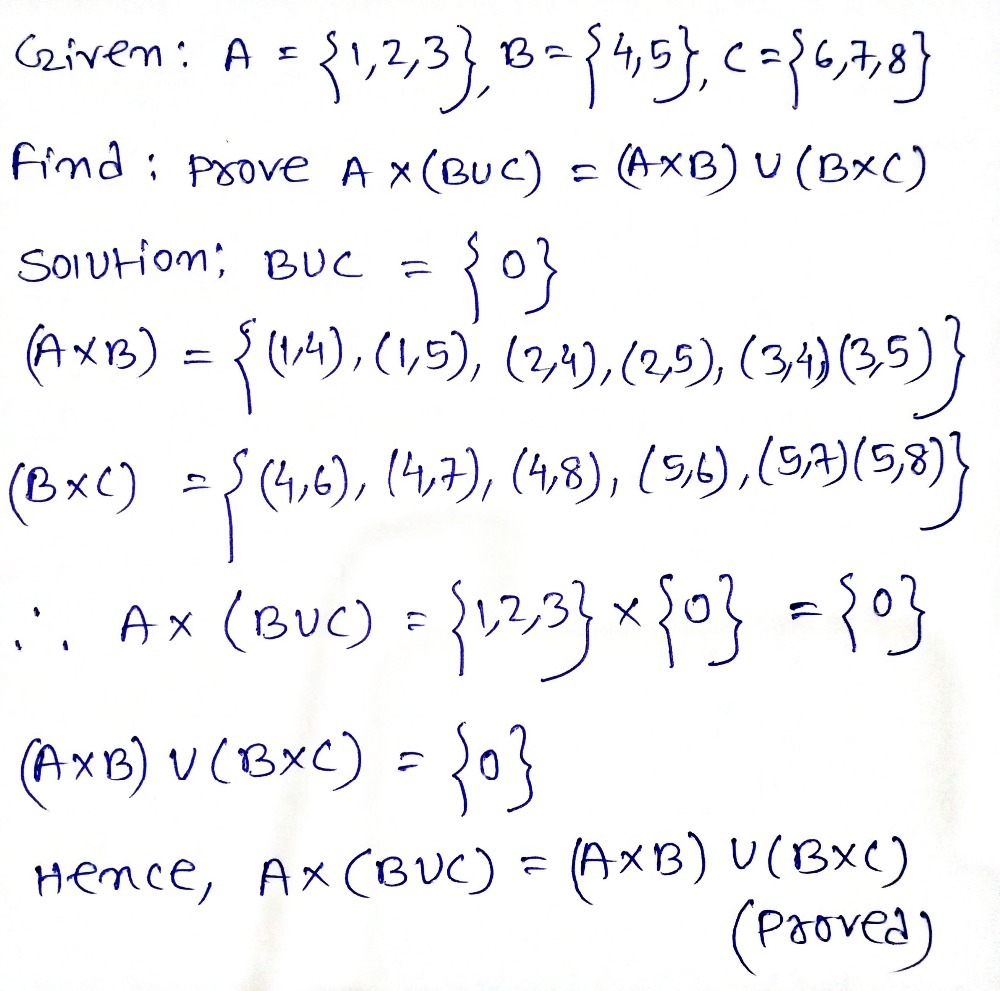 Given: A = {1,2,3}, B = {4,5}, C = {6,7,8}
Find: Prove A × (BUC) = (A×B) U (B×C)
Solution: BUC = {0}
(A×B) = {(1,4), (1,5), (2,4), (2,5), (3,4) (3,5)}
(B×C) = {(4,6), (4,7), (4,8), (5,6), (5,7) (5,8)}
∴ A × (BUC) = {1,2,3} × {0} = {0}
(A×B) U (B×C) = {0}
Hence, A × (BUC) = (A×B) U (B×C)
(Proved)